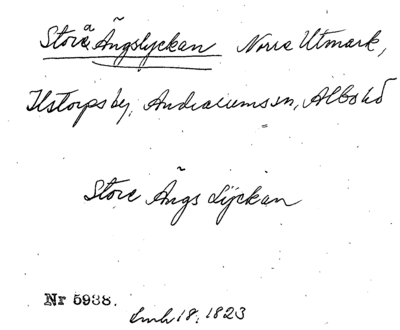 Stora Ängslyckan Norra Utmark,
Ilstorps by, Andrarums sn, Albo hd
Store Ängs Lÿckan
Nr 5938.
Lmh 18, 1823